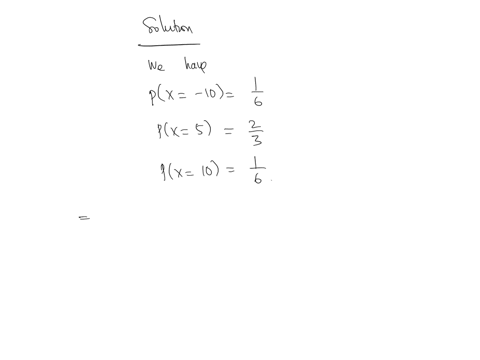 Solution
We have
P(X = -10) = 1/6
P(X = 5) = 2/3
P(X = 10) = 1/6
=